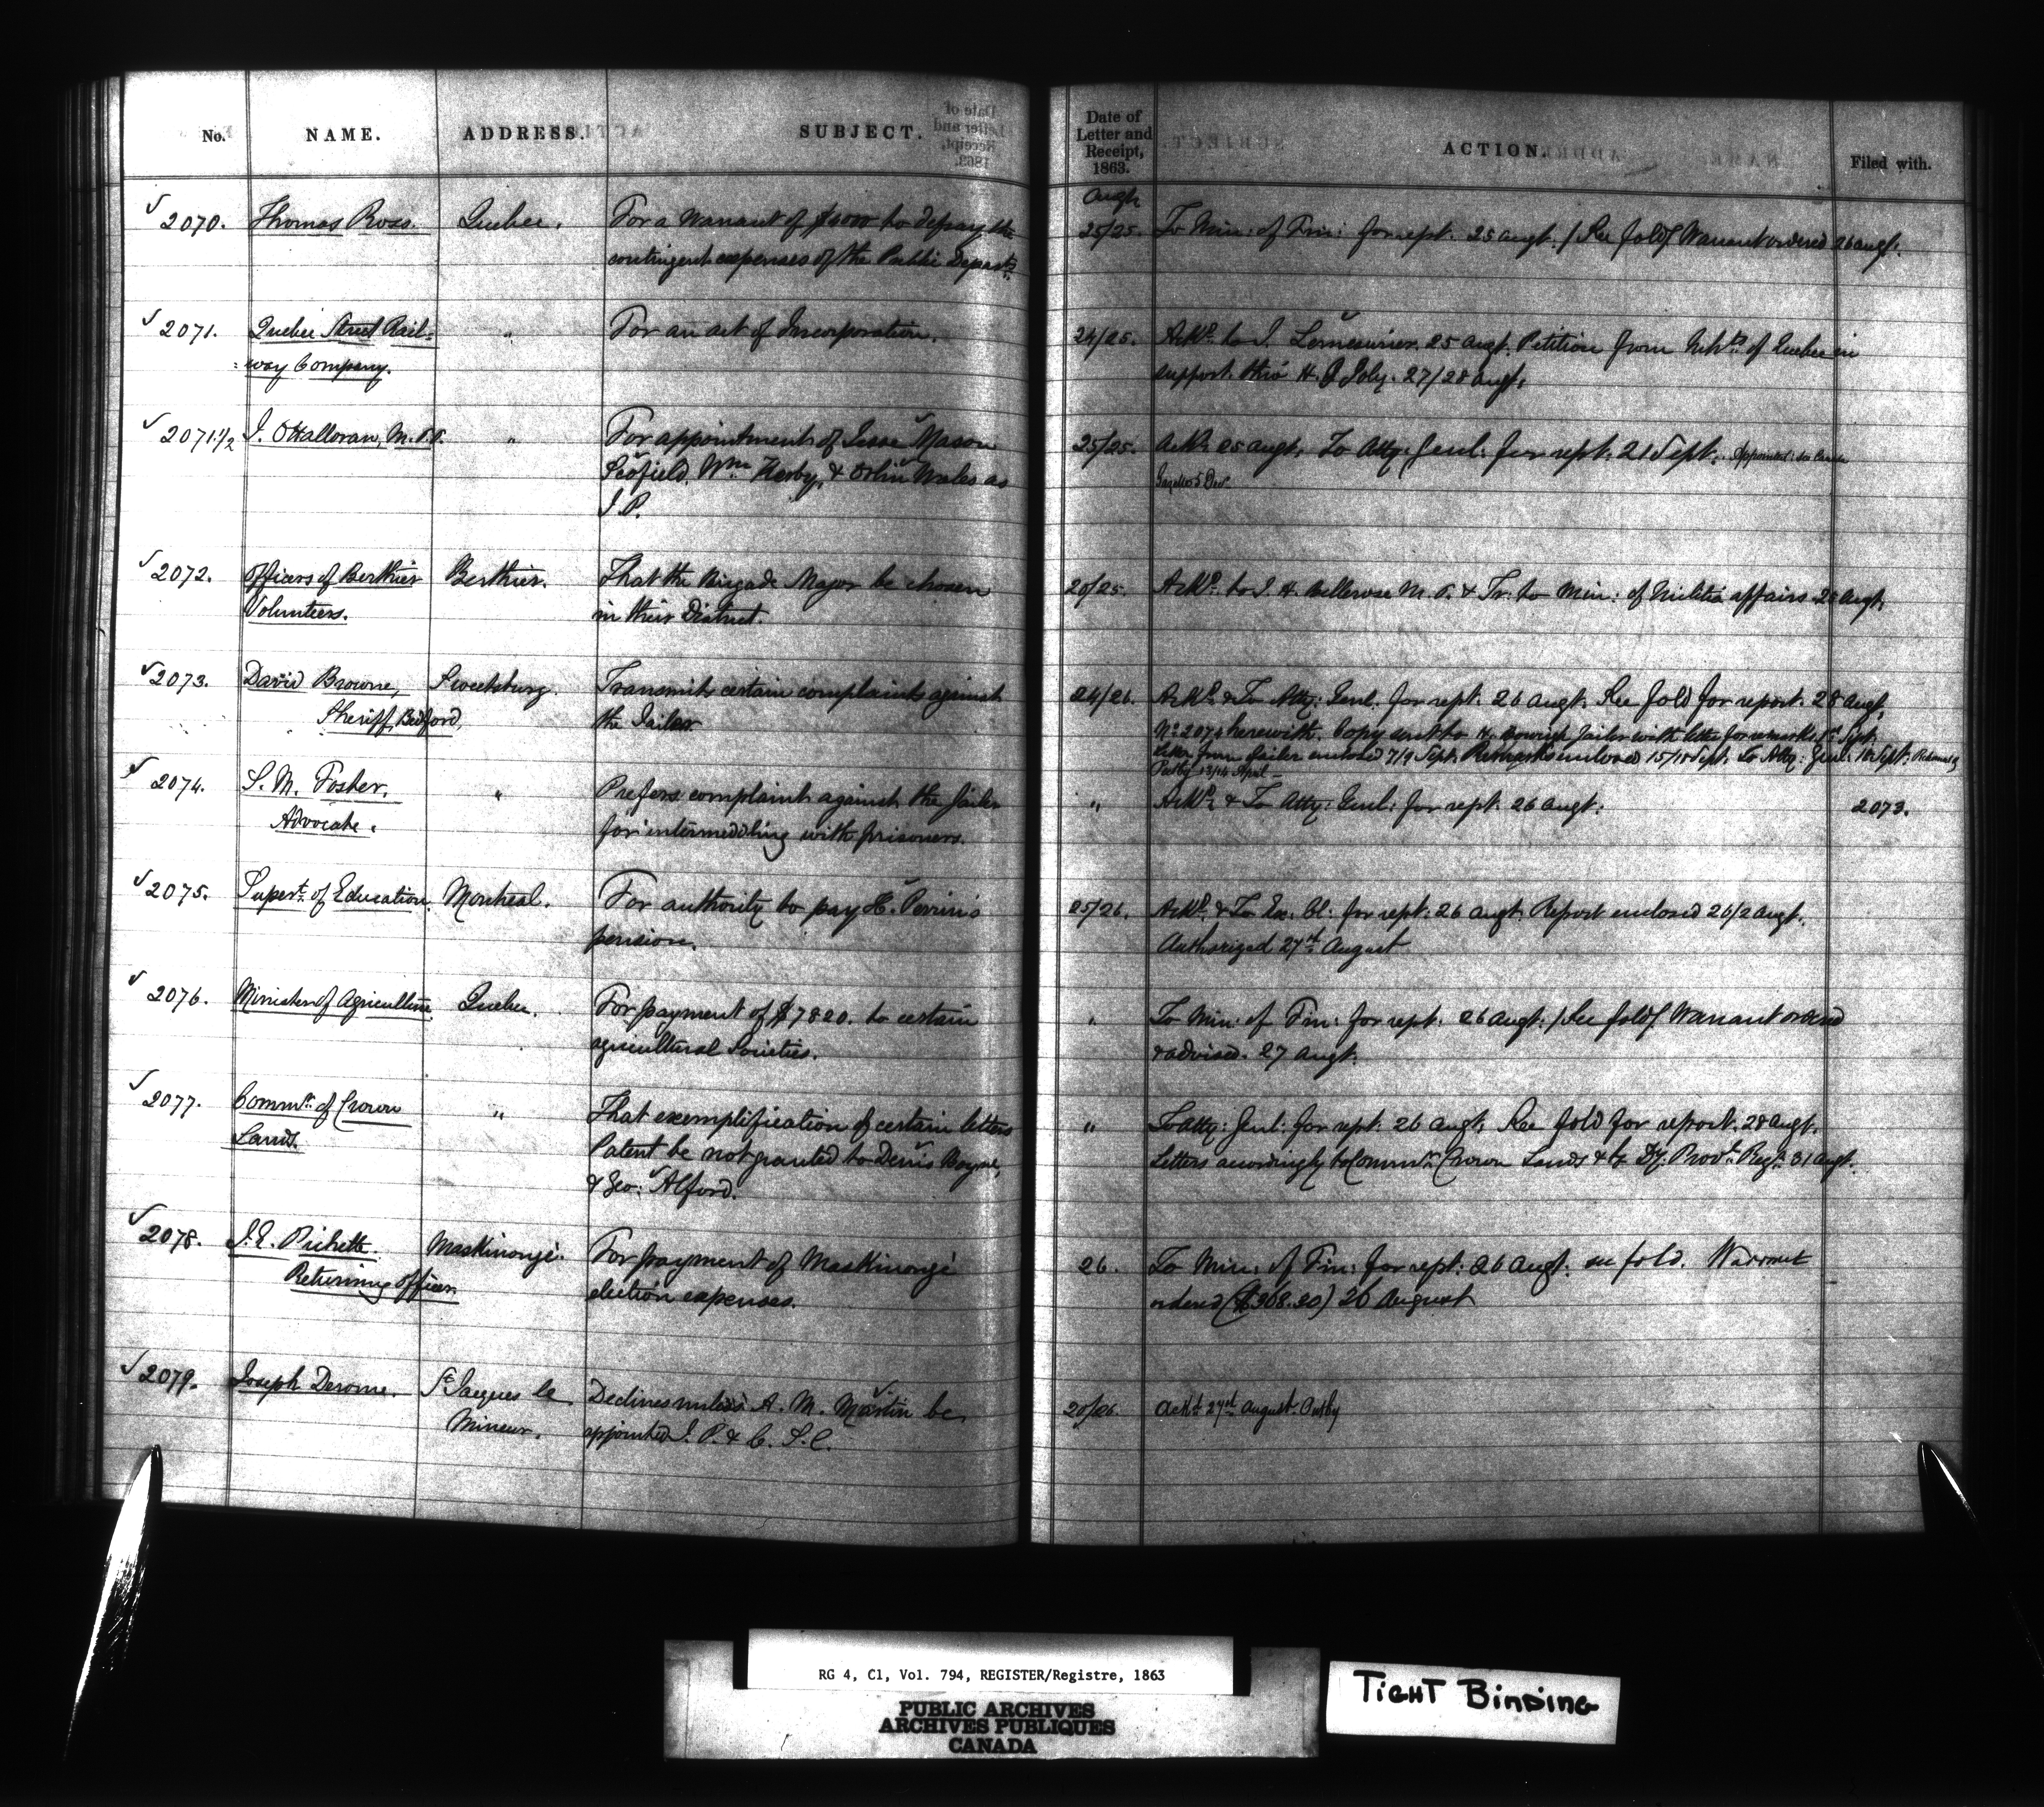 No. NAME. ADDRESS. SUBJECT. Date of Letter and Receipt, 1863. ACTION. Filed with.
Augt
2070. Thomas Ross. Quebec. For a Warrant of $4000 to defray the 25/25. To Min: of Fin: for rept. 25 Augt. / See fold / Warrant ordered 26 Augt.
contingent expenses of the Public Departs.
2071. Quebec Street Rail= " For an act of Incorporation. 24/25. Ackd. to J. Lemesurier. 25 Augt. Petition from Inhts. of Quebec in
=way Company. support thro' H. G Joly. 27/28 Augt.
2071.1/2 J. O'Halloran, M.P.P. " For appointments of Jesse Mason 25/25. Ackd. 25 Augt. To Atty: Genl: for rept. 21 Sept. Appointed: see Canada
Scofield, Wm. Herby, & Orlin Wales as Gazette 5 Decr.
J. P.
2072. Officers of Berthier Berthier. That the Brigade Major be chosen 20/25. Ackd. to J. H. Bellerose M. P. & Tr: to Min: of Militia affairs 25 Augt.
Volunteers. in their District.
2073. David Browne, Sweetsburg. Transmits certain complaints against 24/26. Ackd. & To Atty: Genl. for rept. 26 Augt. See fold for report. 28 Augt.
Sheriff, Bedford, the Jailer. No. 2074 herewith. Copy sent to H. Jailer with letter for remarks 1st Sept.
Letter from Jailer enclosed 7/9 Sept. Remarks enclosed 15/18 Sept. To Atty: Genl: 18 Sept. Returned
13/14 April
2074. S. M. Foster. " Prefers complaint against the Jailer " Ackd. & To Atty: Genl: for rept. 26 Augt: 2073.
Advocate. for intermeddling with prisoners.
2075. Supert. of Education. Montreal. For authority to pay H. Perrin's 25/26. Ackd. & To Ex: Cl: for rept. 26 Augt. Report enclosed 26/2 Augt.
pension. Authorized 27th August
2076. Minister of Agriculture. Quebec. For payment of $7820. to certain " To Min: of Fin: for rept. 26 Augt: / See fold / Warrant ordered
agricultural Societies. & advised. 27 Augt.
2077. Commr. of Crown " That exemplification of certain letters " To Atty: Genl: for rept: 26 Augt. See fold for report. 28 Augt.
Lands. Patent be not granted to Denis Boyne, Letters accordingly to Commr. Crown Lands & to Dy. Provl. Regr. 31 Augt.
& Geo: Alford.
2078. J. E. Pichette. Maskinongé. For payment of Maskinongé 26. To Min: of Fin: for rept: 26 Augt: see fold. Warrant
Returning officer. election expenses. ordered ($368.30) 26 August
2079. Joseph Derome. St Jacques le Declines unless A. M. Martin be 20/26. Ackd 27th August.
Mineur. appointed J. P. & C. S. C.
RG 4, C1, Vol. 794, REGISTER/Registre, 1863
PUBLIC ARCHIVES
ARCHIVES PUBLIQUES
CANADA
TIGHT BINDING